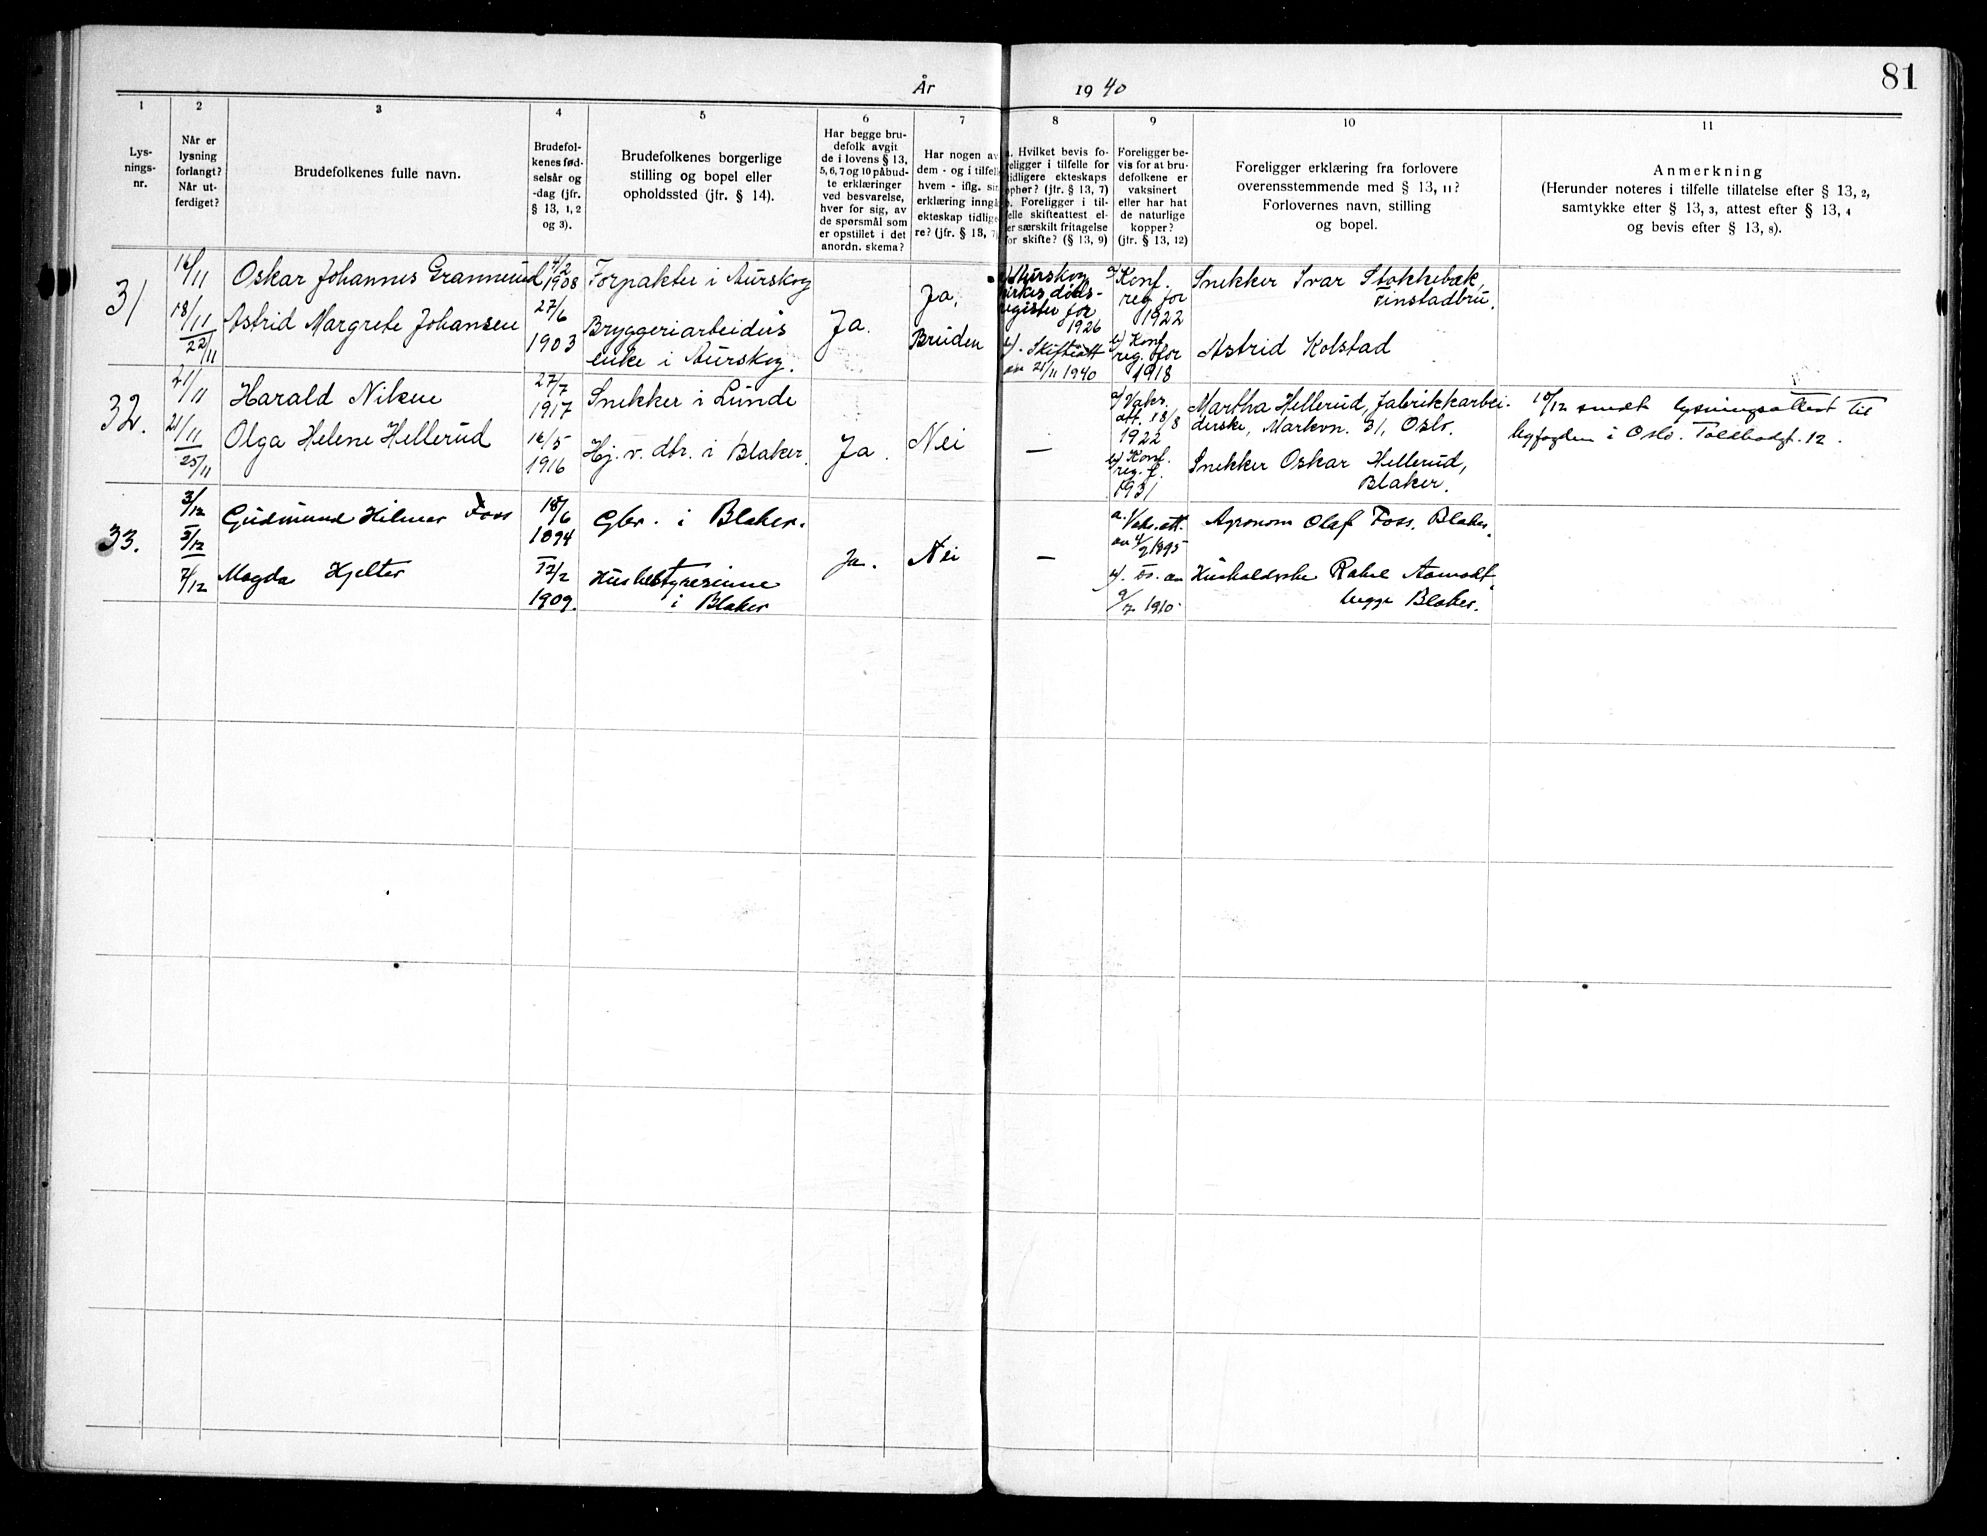 81
År 1940
1 2 3 4 5 6 7 8 9 10 11
Lys-
nings-
nr.
Når er
lysning
forlangt?
Når ut-
ferdiget?
Brudefolkenes fulle navn.
Brudefol-
kenes fød-
selsår og
-dag (jfr.
§ 13, 1, 2
og 3).
Brudefolkenes borgerlige
stilling og bopel eller
opholdssted (jfr. § 14).
Har begge bru-
defolk avgit
de i lovens § 13,
5, 6, 7 og 10 påbud-
te erklæringer
ved besvarelse,
hver for sig, av
de spørsmål som
er opstillet i det
anordn. skema?
Har nogen av
dem - og i tilfelle
hvem - iflg. sin
erklæring inngå
ekteskap tidlige
re? (jfr. § 13, 7
a. Hvilket bevis fo-
religger i tilfelle for
tidligere ekteskaps
ophør? (jfr. § 13, 7)
b. Foreligger i til-
felle skifteattest el-
ler særskilt fritagelse
for skifte? (§ 13, 9)
Foreligger be-
vis for at bru-
defolkene er
vaksinert
eller har hat
de naturlige
kopper?
(jfr. § 13, 12)
Foreligger erklæring fra forlovere
overensstemmende med § 13, 11?
Forlovernes navn, stilling
og bopel.
Anmerkning
(Herunder noteres i tilfelle tillatelse efter § 13, 2,
samtykke efter § 13, 3, attest efter § 13, 4
og bevis efter § 13, 8).
31
16/11
18/11
22/11
Oskar Johannes Grannerud
Astrid Margrete Johansen
1908
27/6
1903
Forpakter i Aurskog
Bryggeriarbeiders
enke i Aurskog.
Ja.
Ja,
Bruden
a) Aurskog
kirkes døds-
register for
1926
b). Skifteatt
av 21/11 1940
a) Konf.
reg for
1922
b) Konf.
reg. for
1918
Snekker Ivar Stokkebæk,
Finstadbru.
Astrid Kolstad
32.
21/11
21/11
25/11
Harald Nikue
Olga Helene Hellerud
27/7
1917
16/5
1916
Snekker i Lunde
Hj. v. dtr. i Blaker.
Ja.
Nei
—
a) Vaks.
att. 18/8
1922
b) Konf.
reg. f.
1931
Martha Hellerud, fabrikkarbei-
derske, Markvn. 31, Oslo.
Snekker Oskar Hellerud,
Blaker.
10/12 sendt lysningsattest til
byfogden i Oslo. Toldbodgt. 12.
33.
3/12
5/12
7/12
Gudmund Hilmar Foss
Magda Hjelter
18/6
1894
12/2
1909.
Gbr. i Blaker.
Husbestyrerinne
i Blaker
Ja.
Nei
—
a. Vaks. att.
av 4/7 1895
b). Do. av
9/7 1910
Agronom Olaf Foss. Blaker.
Husholderske Rakel Aamodt,
Blaker.